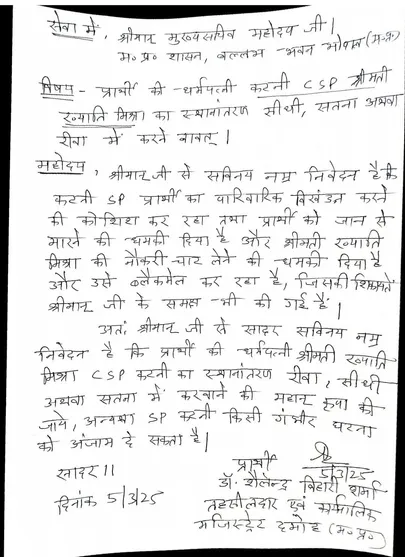 सेवा में, श्रीमान् मुख्यसचिव महोदय जी।
म० प्र० शासन, वल्लभ-भवन भोपाल (म०प्र०)
विषय - प्रार्थी की धर्मपत्नी कटनी CSP श्रीमती
ख्याति मिश्रा का स्थानांतरण सीधी, सतना अथवा
रीवा में करने बावत्।
महोदय, श्रीमान् जी से सविनय नम्र निवेदन है कि
कटनी SP प्रार्थी का पारिवारिक विखंडन करने
की कोशिश कर रहा तथा प्रार्थी को जान से
मारने की धमकी दिया है और श्रीमती ख्याति
मिश्रा की नौकरी चाट लेने की धमकी दिया है
और उसे ब्लैकमेल कर रहा है, जिसकी शिकायतें
श्रीमान् जी के समक्ष भी की गई हैं।
अतः श्रीमान् जी से सादर सविनय नम्र
निवेदन है कि प्रार्थी की धर्मपत्नी श्रीमती ख्याति
मिश्रा CSP कटनी का स्थानांतरण रीवा, सीधी
अथवा सतना में करवाने की महान् कृपा की
जाये, अन्यथा SP कटनी किसी गंभीर घटना
को अंजाम दे सकता है।
सादर।।
प्रार्थी
5/3/25
दिनांक 5/3/25
डॉ. शैलेन्द्र बिहारी शर्मा
तहसीलदार एवं कार्यपालिक
मजिस्ट्रेट दमोह (म०प्र०)